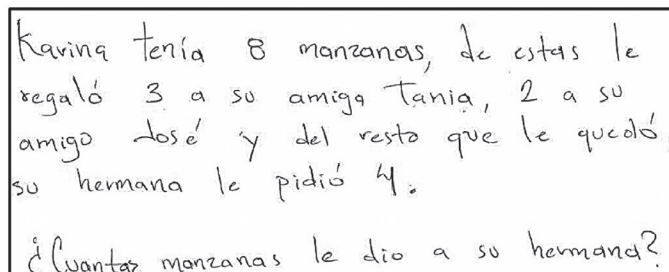 Karina tenía 8 manzanas, de estas le
regaló 3 a su amiga Tania, 2 a su
amigo José y del resto que le quedó
su hermana le pidió 4.
¿Cuantas manzanas le dio a su hermana?